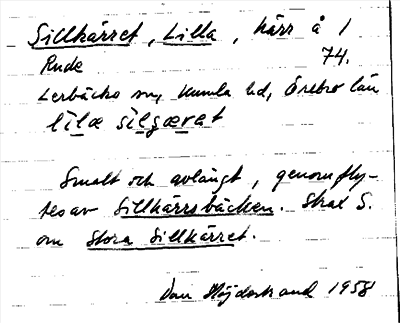 Sillkärret, Lilla, kärr å 1
Rude 74.
Lerbäcks sn, Kumla hd, Örebro län
lilæ silgærat
Smalt och avlångt, genomfly-
tes av Sillkärrsbäcken. Strax S.
om Stora Sillkärret.
1958